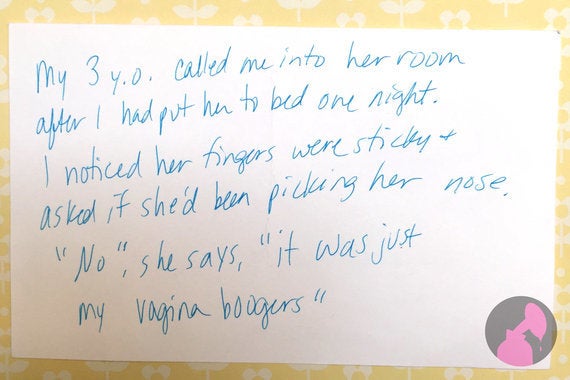 My 3 y.o. called me into her room
after I had put her to bed one night.
I noticed her fingers were sticky +
asked if she'd been picking her nose.
"No", she says, "it was just
my vagina boogers"